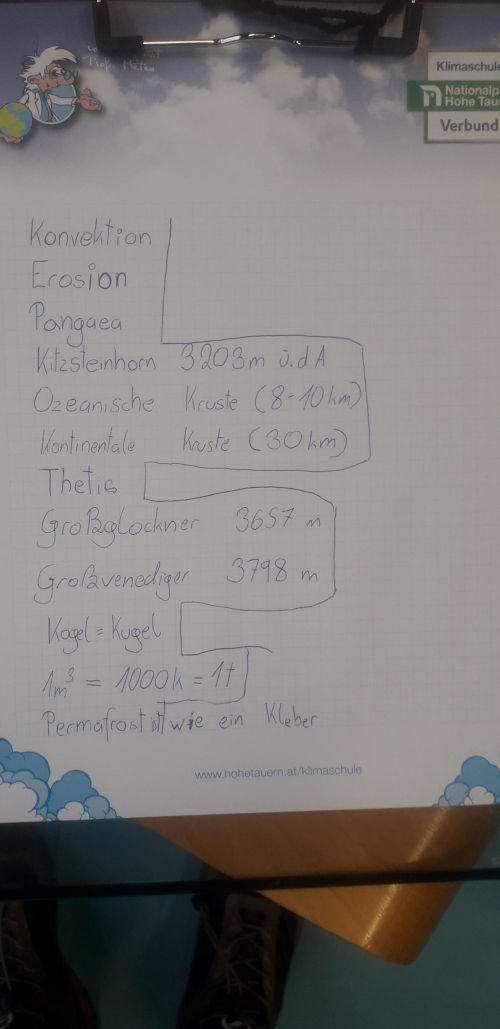 Prof. Meteo
Klimaschule
Nationalp
Hohe Taue
Verbund
Konvektion
Erosion
Pangaea
Kitzsteinhorn 3203m ü.d A
Ozeanische Kruste (8-10km)
Kontinentale Kruste (30km)
Thetis
Großglockner 3657 m
Großvenediger 3798 m
Kogel = Kugel
1m³ = 1000k = 1t
Permafrost ist wie ein Kleber
www.hohetauern.at/klimaschule